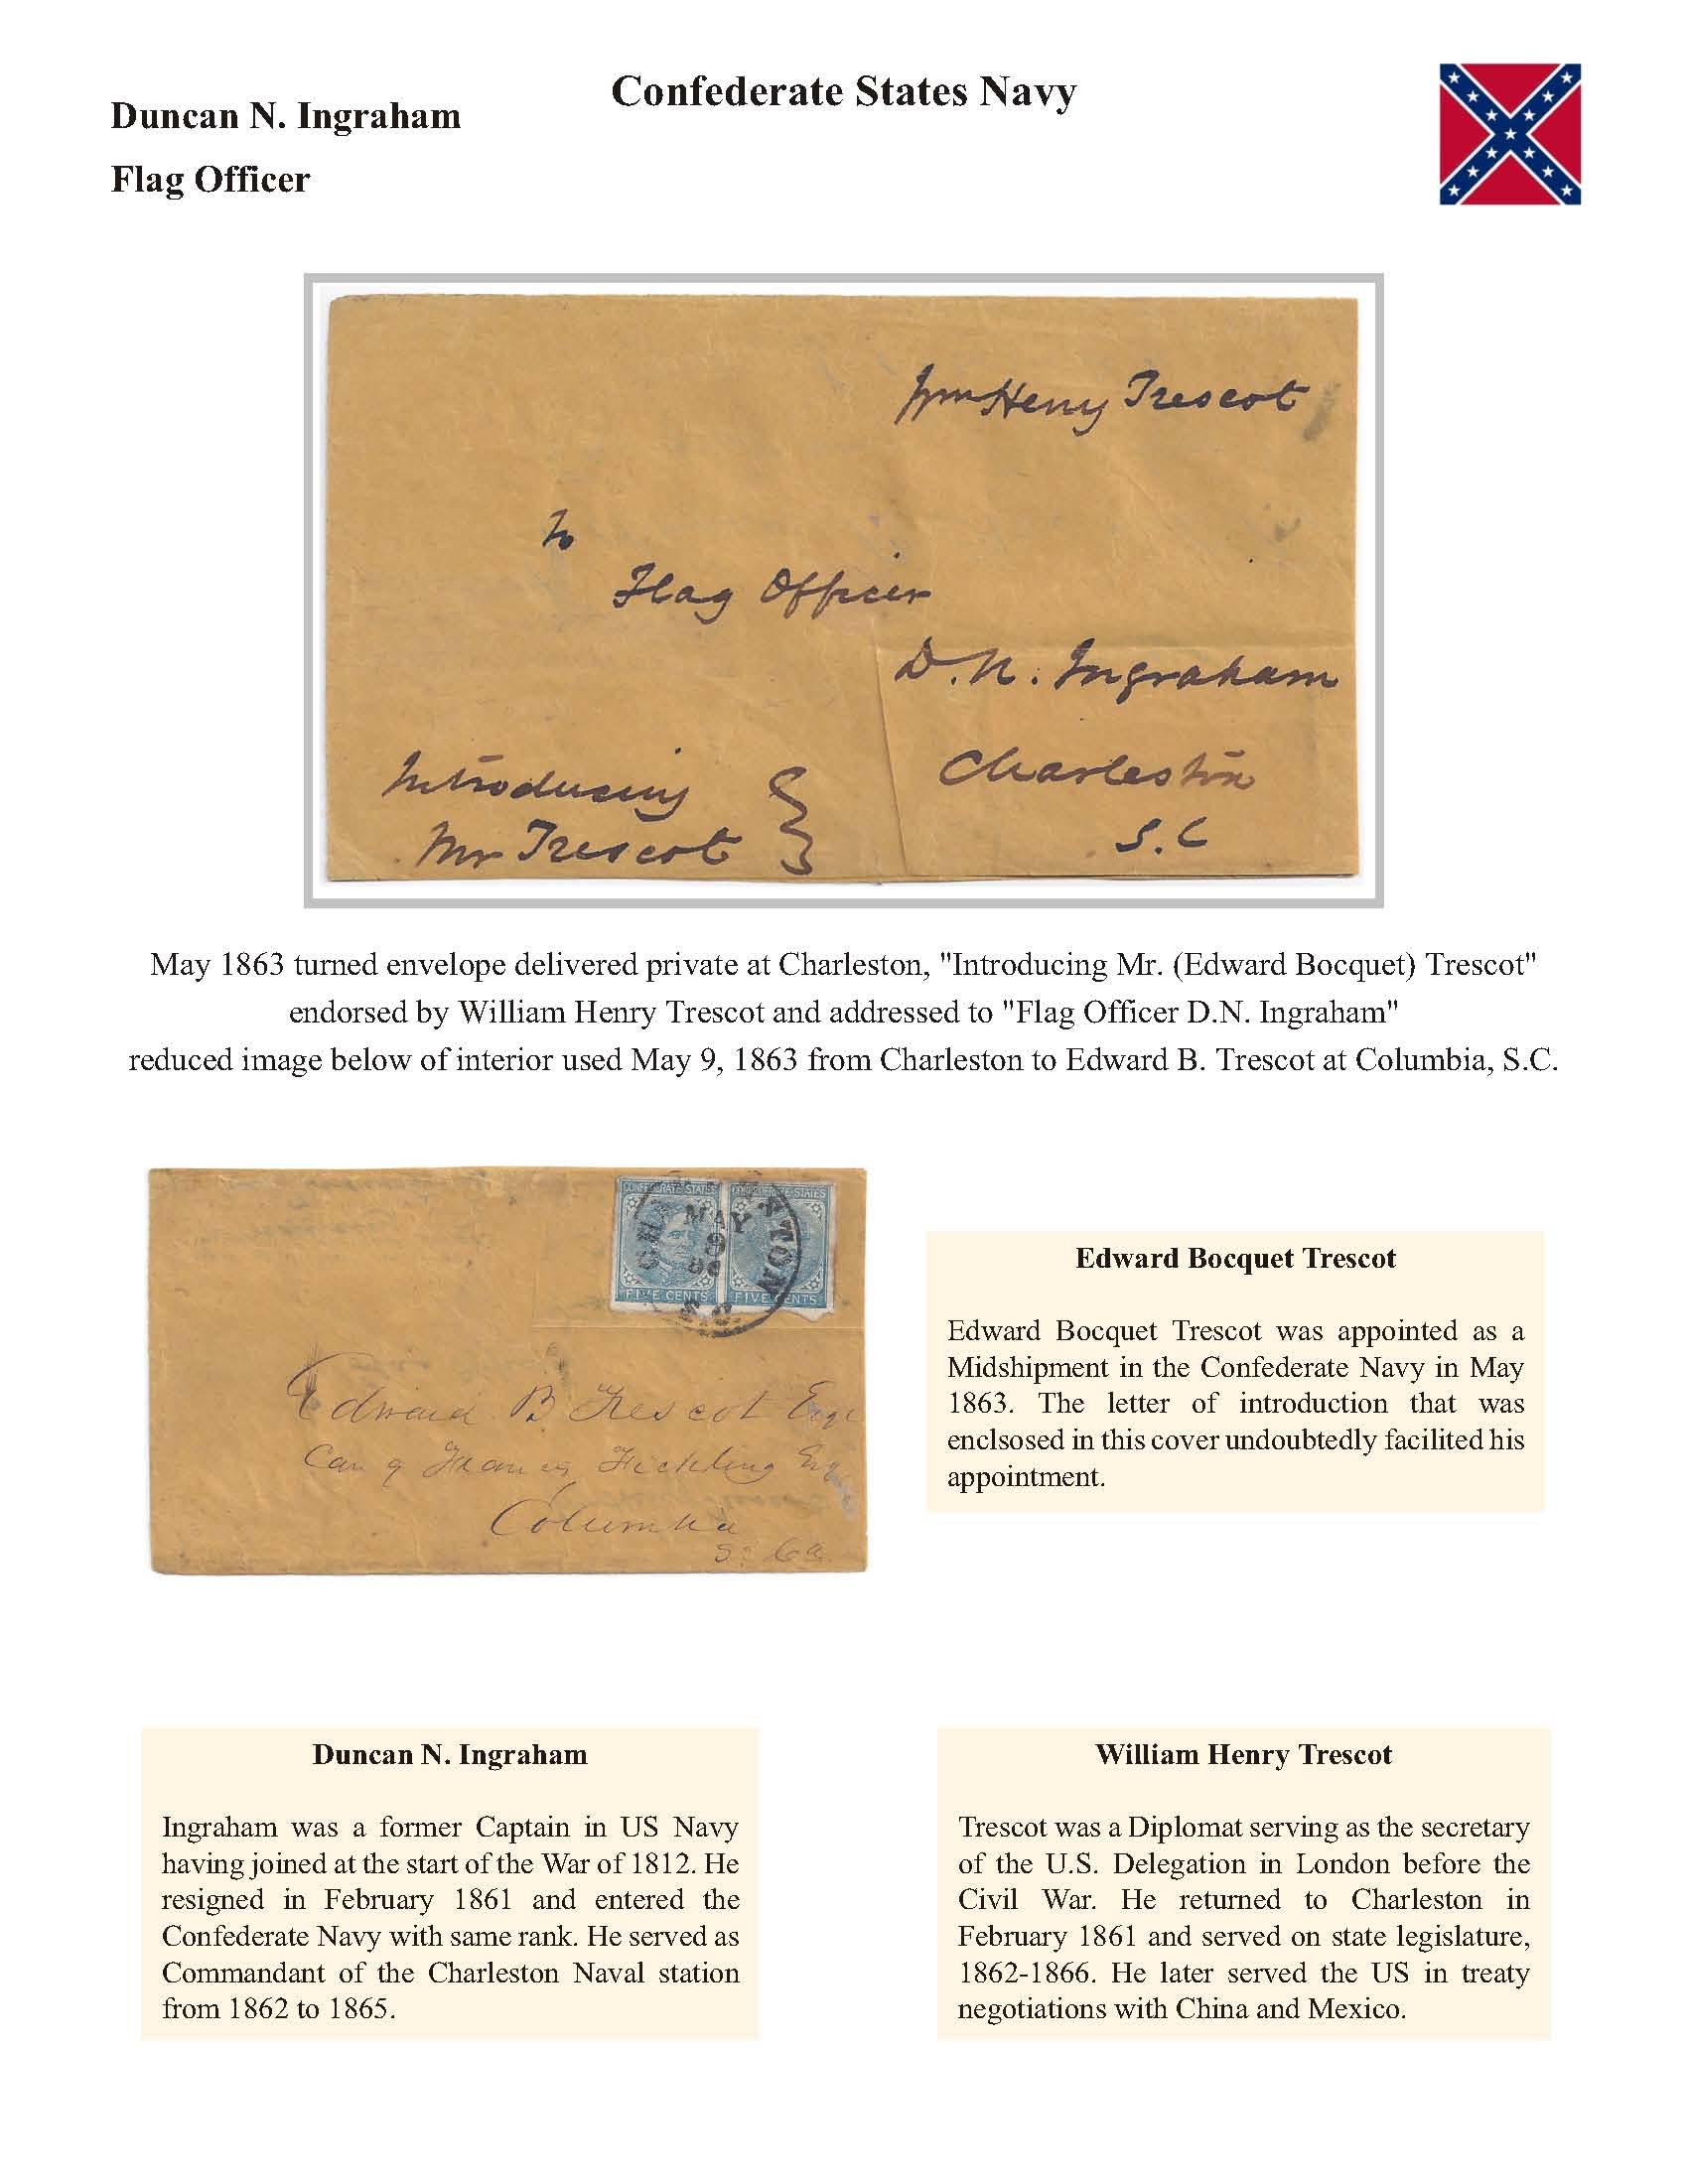 Confederate States Navy
Duncan N. Ingraham
Flag Officer
Wm Henry Trescot
To
Flag Officer
D. N. Ingraham
Charleston
S. C
Introducing
Mr Trescot
May 1863 turned envelope delivered private at Charleston, "Introducing Mr. (Edward Bocquet) Trescot"
endorsed by William Henry Trescot and addressed to "Flag Officer D.N. Ingraham"
reduced image below of interior used May 9, 1863 from Charleston to Edward B. Trescot at Columbia, S.C.
CONFEDERATE STATES CONFEDERATE STATES
MAY
9
FIVE CENTS FIVE CENTS
Edward B Trescot Esqr
Care of Francis Fickling Esq
Columbia
So Ca
Edward Bocquet Trescot
Edward Bocquet Trescot was appointed as a
Midshipment in the Confederate Navy in May
1863. The letter of introduction that was
enclsosed in this cover undoubtedly facilited his
appointment.
Duncan N. Ingraham
Ingraham was a former Captain in US Navy
having joined at the start of the War of 1812. He
resigned in February 1861 and entered the
Confederate Navy with same rank. He served as
Commandant of the Charleston Naval station
from 1862 to 1865.
William Henry Trescot
Trescot was a Diplomat serving as the secretary
of the U.S. Delegation in London before the
Civil War. He returned to Charleston in
February 1861 and served on state legislature,
1862-1866. He later served the US in treaty
negotiations with China and Mexico.